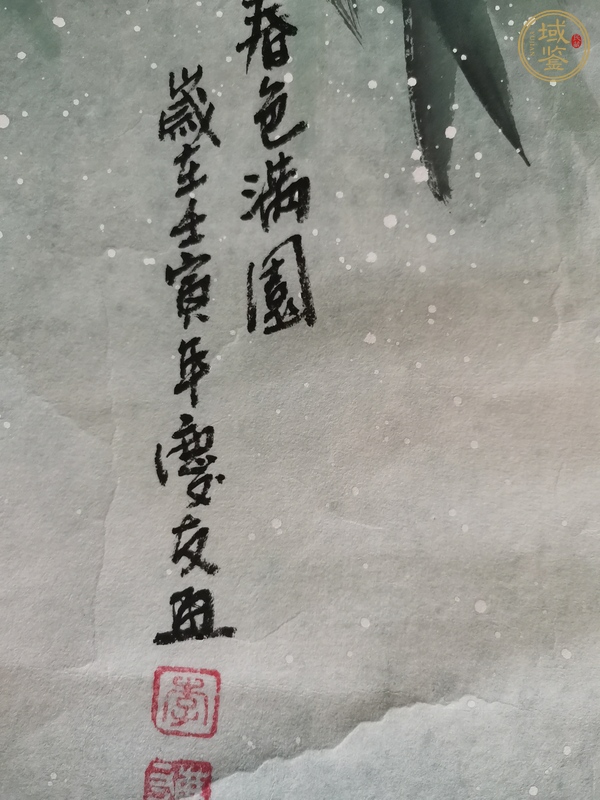 春色滿園
歲在壬寅年慶友畫
李
域鉴